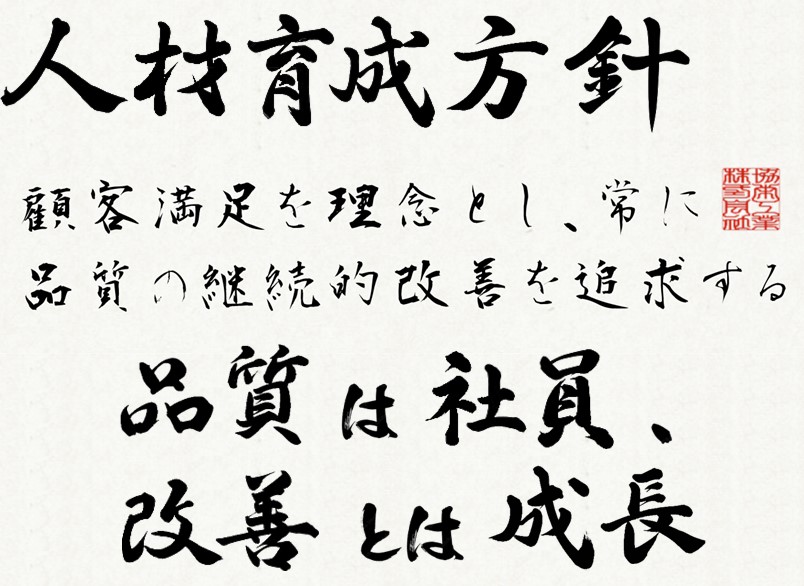 人材育成方針
顧客満足を理念とし、常に
品質の継続的改善を追求する
品質は社員、
改善とは成長